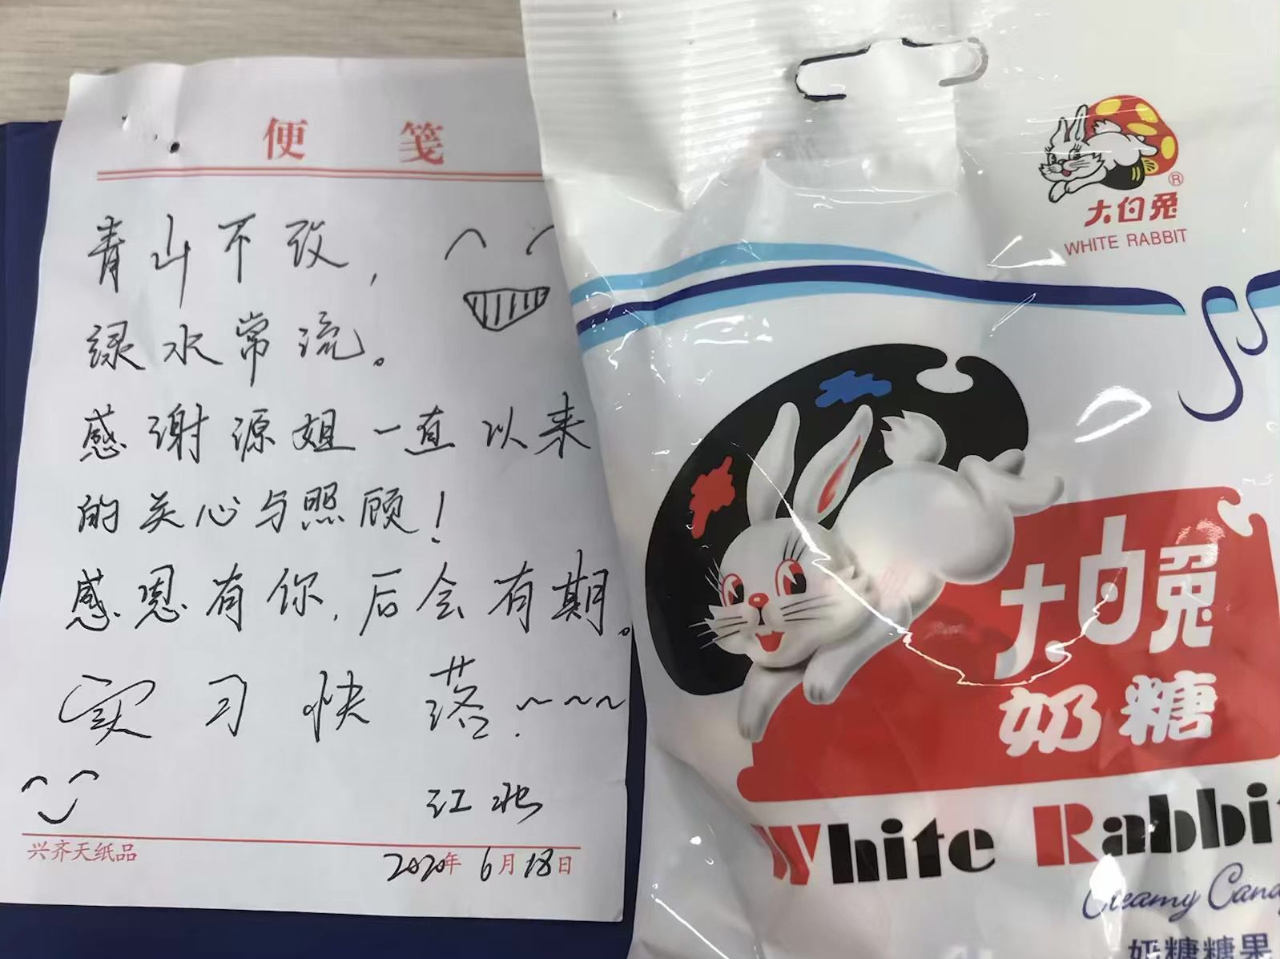 便笺
青山不改，
绿水常流。
感谢源姐一直以来
的关心与照顾！
感恩有你，后会有期。
实习快落~~~
江
兴齐天纸品
2020年6月18日
大白兔
WHITE RABBIT
大白兔
奶糖
White Rabbi
Creamy Cand
奶糖糖果